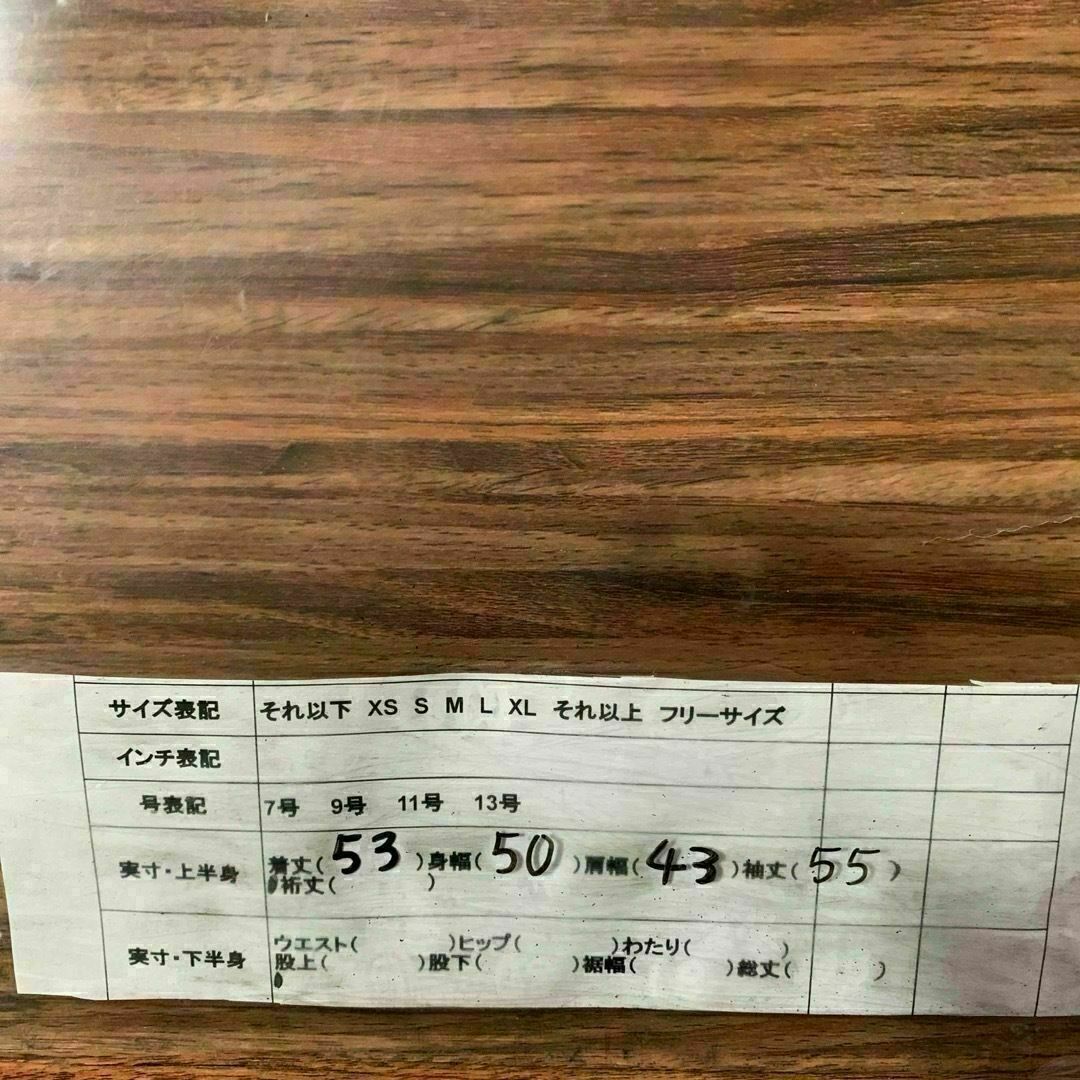 サイズ表記 それ以下 XS S M L XL それ以上 フリーサイズ
インチ表記
号表記 7号 9号 11号 13号
実寸・上半身 着丈(53)身幅(50)肩幅(43)袖丈(55)
裄丈( )
実寸・下半身 ウエスト( )ヒップ( )わたり( )
股上( )股下( )裾幅( )総丈( )